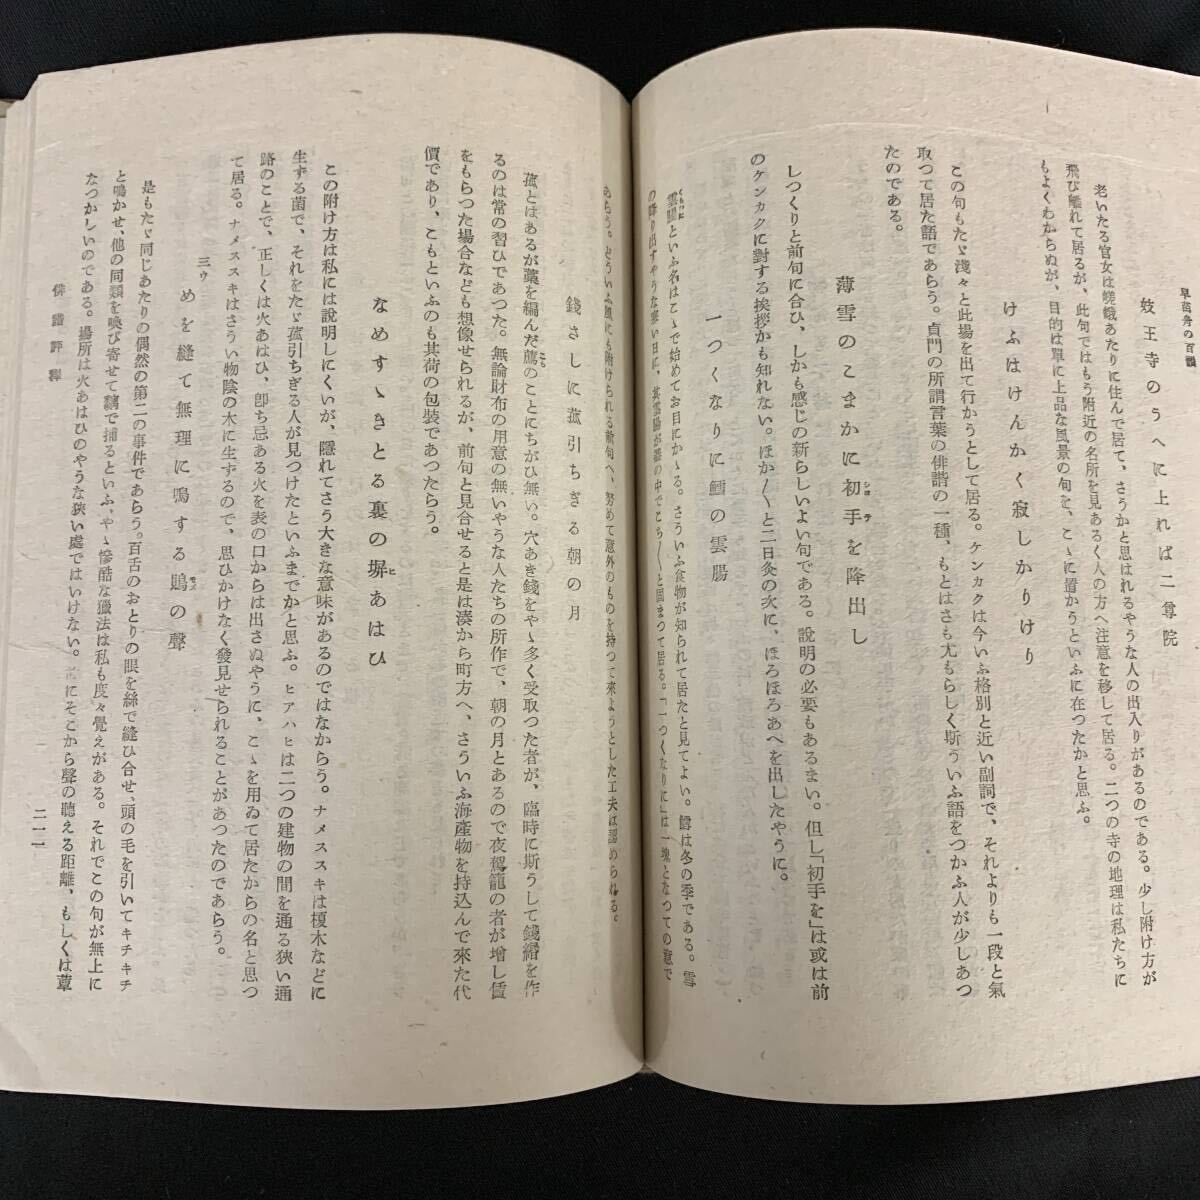 早苗舟の百韻
妓王寺のうへに上れば二尊院
老いたる官女は嵯峨あたりに住んで居て、さうかと思はれるやうな人の出入りがあるのである。少し附け方が
飛び離れて居るが、此句ではもう附近の名所を見あるく人の方へ注意を移して居る。二つの寺の地理は私たちに
もよくわからぬが、目的は單に上品な風景の句を、こゝに置かうといふに在つたかと思ふ。
けふはけんかく寂しかりけり
この句もたゞ淺々と此場を出て行かうとして居る。ケンカクは今いふ格別と近い副詞で、それよりも一段と氣
取つて居た語であらう。貞門の所謂言葉の俳諧の一種、もとはさも尤もらしく斯ういふ語をつかふ人が少しあつ
たのである。
薄雪のこまかに初手を降出し
シヨテ
しつくりと前句に合ひ、しかも感じの新らしいよい句である。說明の必要もあるまい。但し「初手を」は或は前
のケンカクに對する挨拶かも知れない。ほか〱と二日灸の次に、ほろほろあへを出したやうに。
一つくなりに鱈の雲腸
雲腸といふ名はこゝで始めてお目にかゝる。さういふ食物が知られて居たと見てよい。鱈は冬の季である。雪
の降り出すやうな寒い日に、其雲腸が器の中でこち〱と固まつて居る。「一つくなりに」は一塊となつての意で
あらう。どういふ風にも附けられる前句へ、努めて意外のものを持つて來ようとした工夫は認められる。
錢さしに菰引ちぎる朝の月
菰とはあるが藁を編んだ薦のことにちがひ無い。穴あき錢をやゝ多く受取つた者が、臨時に斯うして錢緡を作
るのは常の習ひであつた。無論財布の用意の無いやうな人たちの所作で、朝の月とあるので夜駕籠の者が增し賃
をもらつた場合なども想像せられるが、前句と見合せると是は湊から町方へ、さういふ海產物を持込んで來た代
價であり、こもといふのも其荷の包裝であつたらう。
なめすゝきとる裏の塀あはひ
ヒ
この附け方は私には說明しにくいが、隱れてさう大きな意味があるのではなからう。ナメススキは榎木などに
生ずる菌で、それをたゞ菰引ちぎる人が見つけたといふまでかと思ふ。ヒアハヒは二つの建物の間を通る狹い通
路のことで、正しくは火あはひ、卽ち忌ある火を表の口からは出さぬやうに、こゝを用ゐて居たからの名と思つ
て居る。ナメススキはさうい物陰の木に生ずるので、思ひかけなく發見せられることがあつたのであらう。
三ゥ
めを縫て無理に鳴する鵙の聲
モズ
是もたゞ同じあたりの偶然の第二の事件であらう。百舌のおとりの眼を絲で縫ひ合せ、頭の毛を引いてキチキチ
と鳴かせ、他の同類を喚び寄せて黐で捕るといふ、やゝ慘酷な獵法は私も度々覺えがある。それでこの句が無上に
なつかしいのである。場所は火あはひのやうな狹い處ではいけない。にそこから聲の聽える距離、もしくは藪
俳諧評釋
二一一